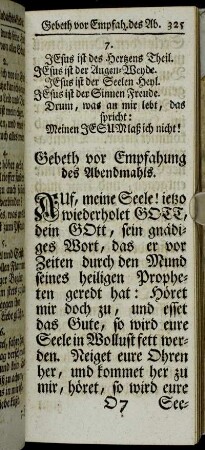 Gebeth vor Empfah. des Ab. 325
7.
JEsus ist des Hertzens Theil.
JEsus ist der Augen-Weyde.
JEsus ist der Seelen Heyl.
JEsus ist der Sinnen Freude.
Drum, was an mir lebt, das
spricht:
Meinen JESUM laß ich nicht!
Gebeth vor Empfahung
des Abendmahls.
AUf, meine Seele! ietzo
wiederholet GOTT,
dein GOtt, sein gnädi-
ges Wort, das er vor
Zeiten durch den Mund
seines heiligen Prophe-
ten geredt hat: Höret
mir doch zu, und esset
das Gute, so wird eure
Seele in Wollust fett wer-
den. Neiget eure Ohren
her, und kommet her zu
mir, höret, so wird eure
O7 See-